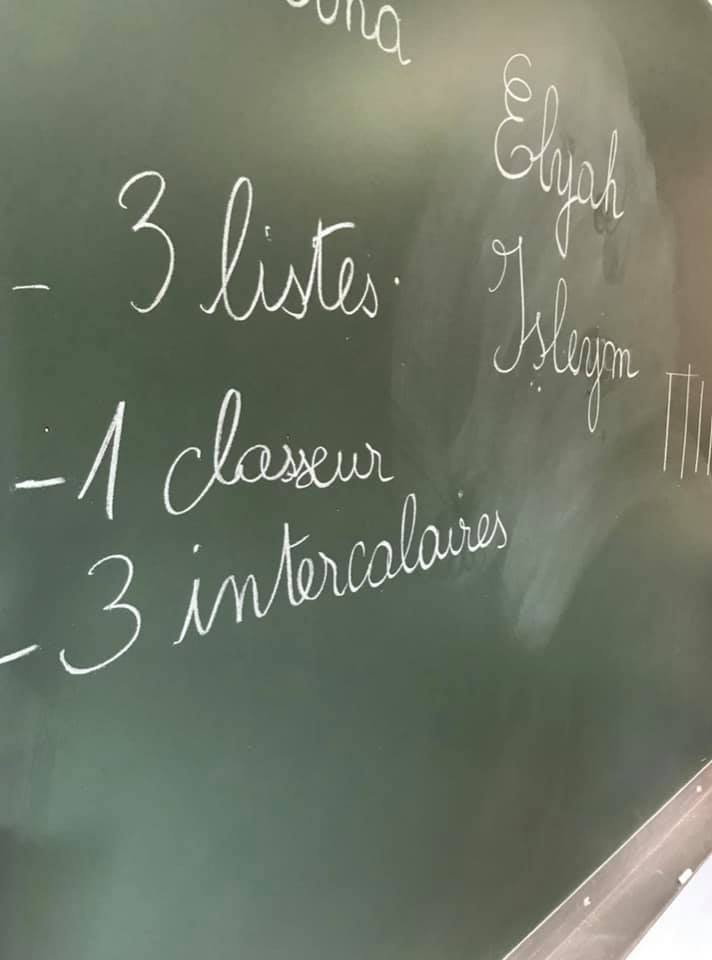 Elyah
- 3 listes.
Isleym
- 1 classeur
- 3 intercalaires